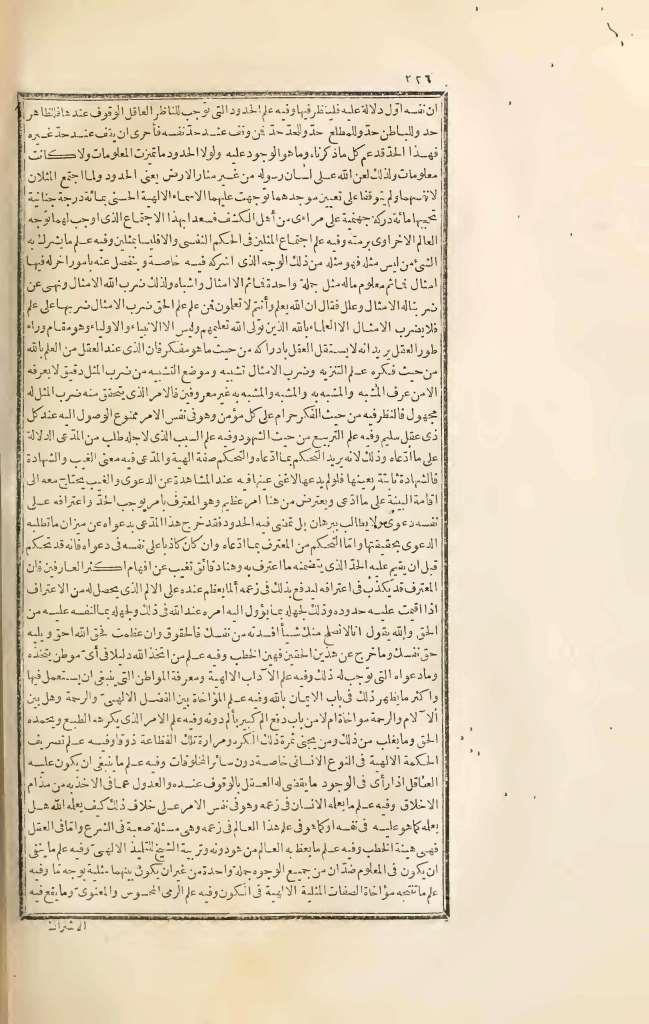 ٢٢٦
ان نفسه اول دلالة عليه فلينظر فيها وفيه علم الحدود التى توجب للناظر العاقل الوقوف عندها فللظاهر
حد وللباطن حد وللمطلع حد وللحد حد فمن وقف عند حد نفسه فأحرى ان يقف عند حد غيره
فهذا الحد قد عم كل ما ذكرناه وما هو الوجود عليه ولولا الحدود ما تميزت المعلومات ولا كانت
معلومات ولذلك لعن الله على لسان رسوله من غير منار الارض يعنى الحدود ولما اجتمع المثلان
لانفسهما ولم يتوقفا على تعيين موجدهما توجهت عليهما الاسماء الالهية الحسنى بمائة درجة جنانية
تحجبها مائة دركة جهنمية على مراءى من أهل الكشف فسعد بهذا الاجتماع الذى اوجب لهما توجه
العالم الاخراوى برمته وفيه علم اجتماع المثلين فى الحكم النفسى والا فليسا بمثلين وفيه علم ما يشرك به
الشئ من ليس مثله فهو مثله من ذلك الوجه الذى اشركه فيه خاصة وينفصل عنه بأمور اخر له فيها
امثال فما ثم معلوم ماله مثل جملة واحدة فما ثم الا امثال واشباه ولذلك ضرب الله الامثال ونهى عن
ضربنا له الامثال وعلل فقال ان الله يعلم وأنتم لا تعلمون فمن علم علم الحق ضرب الامثال ضربها على علم
فلا يضرب الامثال الا العلماء بالله الذين تولى الله تعليمهم وليس الا الانبياء والاولياء وهو مقام وراء
طور العقل يريد انه لا يستقل العقل بادراكه من حيث ما هو مفكر فان الذى عند العقل من العلم بالله
من حيث فكره علم التنزيه وضرب الامثال تشبيه وموضع التشبيه من ضرب المثل دقيق لا يعرفه
الا من عرف المشبه والمشبه به والمشبه والمشبه به غير معروفين فالامر الذى يتحقق منه ضرب المثل له
مجهول فالنظر فيه من حيث الفكر حرام على كل مؤمن وهو فى نفس الامر ممنوع الوصول اليه عند كل
ذى عقل سليم وفيه علم التربيع من حيث الشهود وفيه علم السبب الذى لاجله طلب من المدعى الدلالة
على ما ادعاه وذلك لانه يريد التحكم بما ادعاه والتحكم صفة الهية والمدعى فيه معنى الغيب والشهادة
فالشهادة ثابتة بعينها فلو لم يدعها لاغنى عينها فيه عند المشاهدة عن الدعوى والغيب يحتاج معه الى
اقامة البينة على ما ادعى ويعترض من هنا امر عظيم وهو المعترف بأمر يوجب الحد واعترافه على
نفسه دعوى ولا يطالب ببرهان بل تمضى فيه الحدود فقد خرج هذا المدعى بدعواه عن ميزان ما تطلبه
الدعوى بحقيقتها واما التحكم من المعترف بما ادعاه وان كان كاذبا على نفسه فى دعواه فانه قد تحكم
قبل ان يقيم عليه الحد الذى يتضمنه ما اعترف به وهنا دقائق تغيب عن افهام اكثر العارفين فان
المعترف قد يكذب فى اعترافه ليدفع بذلك فى زعمه ألما يعظم عنده على الالم الذى يحصل له من الاعتراف
اذا اقيمت عليه حدوده وذلك لجهله بما يؤول اليه امره عند الله فى ذلك ولجهله بما لنفسه عليه من
الحق والله يقول انا لا نصلح منك شيأ افسدته من نفسك فالحقوق وان عظمت فحق الله احق ويليه
حق نفسك وما خرج عن هذين الحقين فهين الخطب وفيه علم من اتخذ الله دليلا فى أى موطن يتخذه
وما دعواه التى توجب له ذلك وفيه علم الآداب الالهية ومعرفة المواطن التى ينبغى ان يستعمل فيها
واكثر ما يظهر ذلك فى باب الايمان بالله وفيه علم المؤاخاة بين الفضل الالهى والرحمة وهل بين
الآلام والرحمة مواخاة ام لا من باب دفع ألم كبير بألم دونه وفيه علم الامر الذى يكرهه الطبع ويحمده
الحق وما يغلب من ذلك ومن يجنى ثمرة ذلك الكره ومرارة تلك الفظاعة ذوقا وفيه علم تصريف
الحكمة الالهية فى النوع الانسانى خاصة دون سائر المخلوقات وفيه علم ما ينبغى ان يكون عليه
العاقل اذا رأى فى الوجود ما يقضى له العقل بالوقوف عنده والعدول عما فى الاخذ به من مذام
الاخلاق وفيه علم ما يعلمه الانسان فى زعمه وهو فى نفس الامر على خلاف ذلك كيف يعلمه الله هل
يعلمه كما هو عليه فى نفسه او كما هو فى علم هذا العالم فى زعمه وهى مسئلة صعبة فى الشرع واما فى العقل
فهى هينة الخطب وفيه علم ما يعظ به العالم من هو دونه وتربية الشيخ للتلميذ الالهى وفيه علم ما ينفى
ان يكون فى المعلوم ضدان من جميع الوجوه جملة واحدة من غير ان يكون بينهما مثلية بوجه ما وفيه
علم ما تنتجه مؤاخاة الصفات المثلية الالهية فى الكون وفيه علم الرمى المحسوس والمعنوى وما يقع فيه
الاشتراك